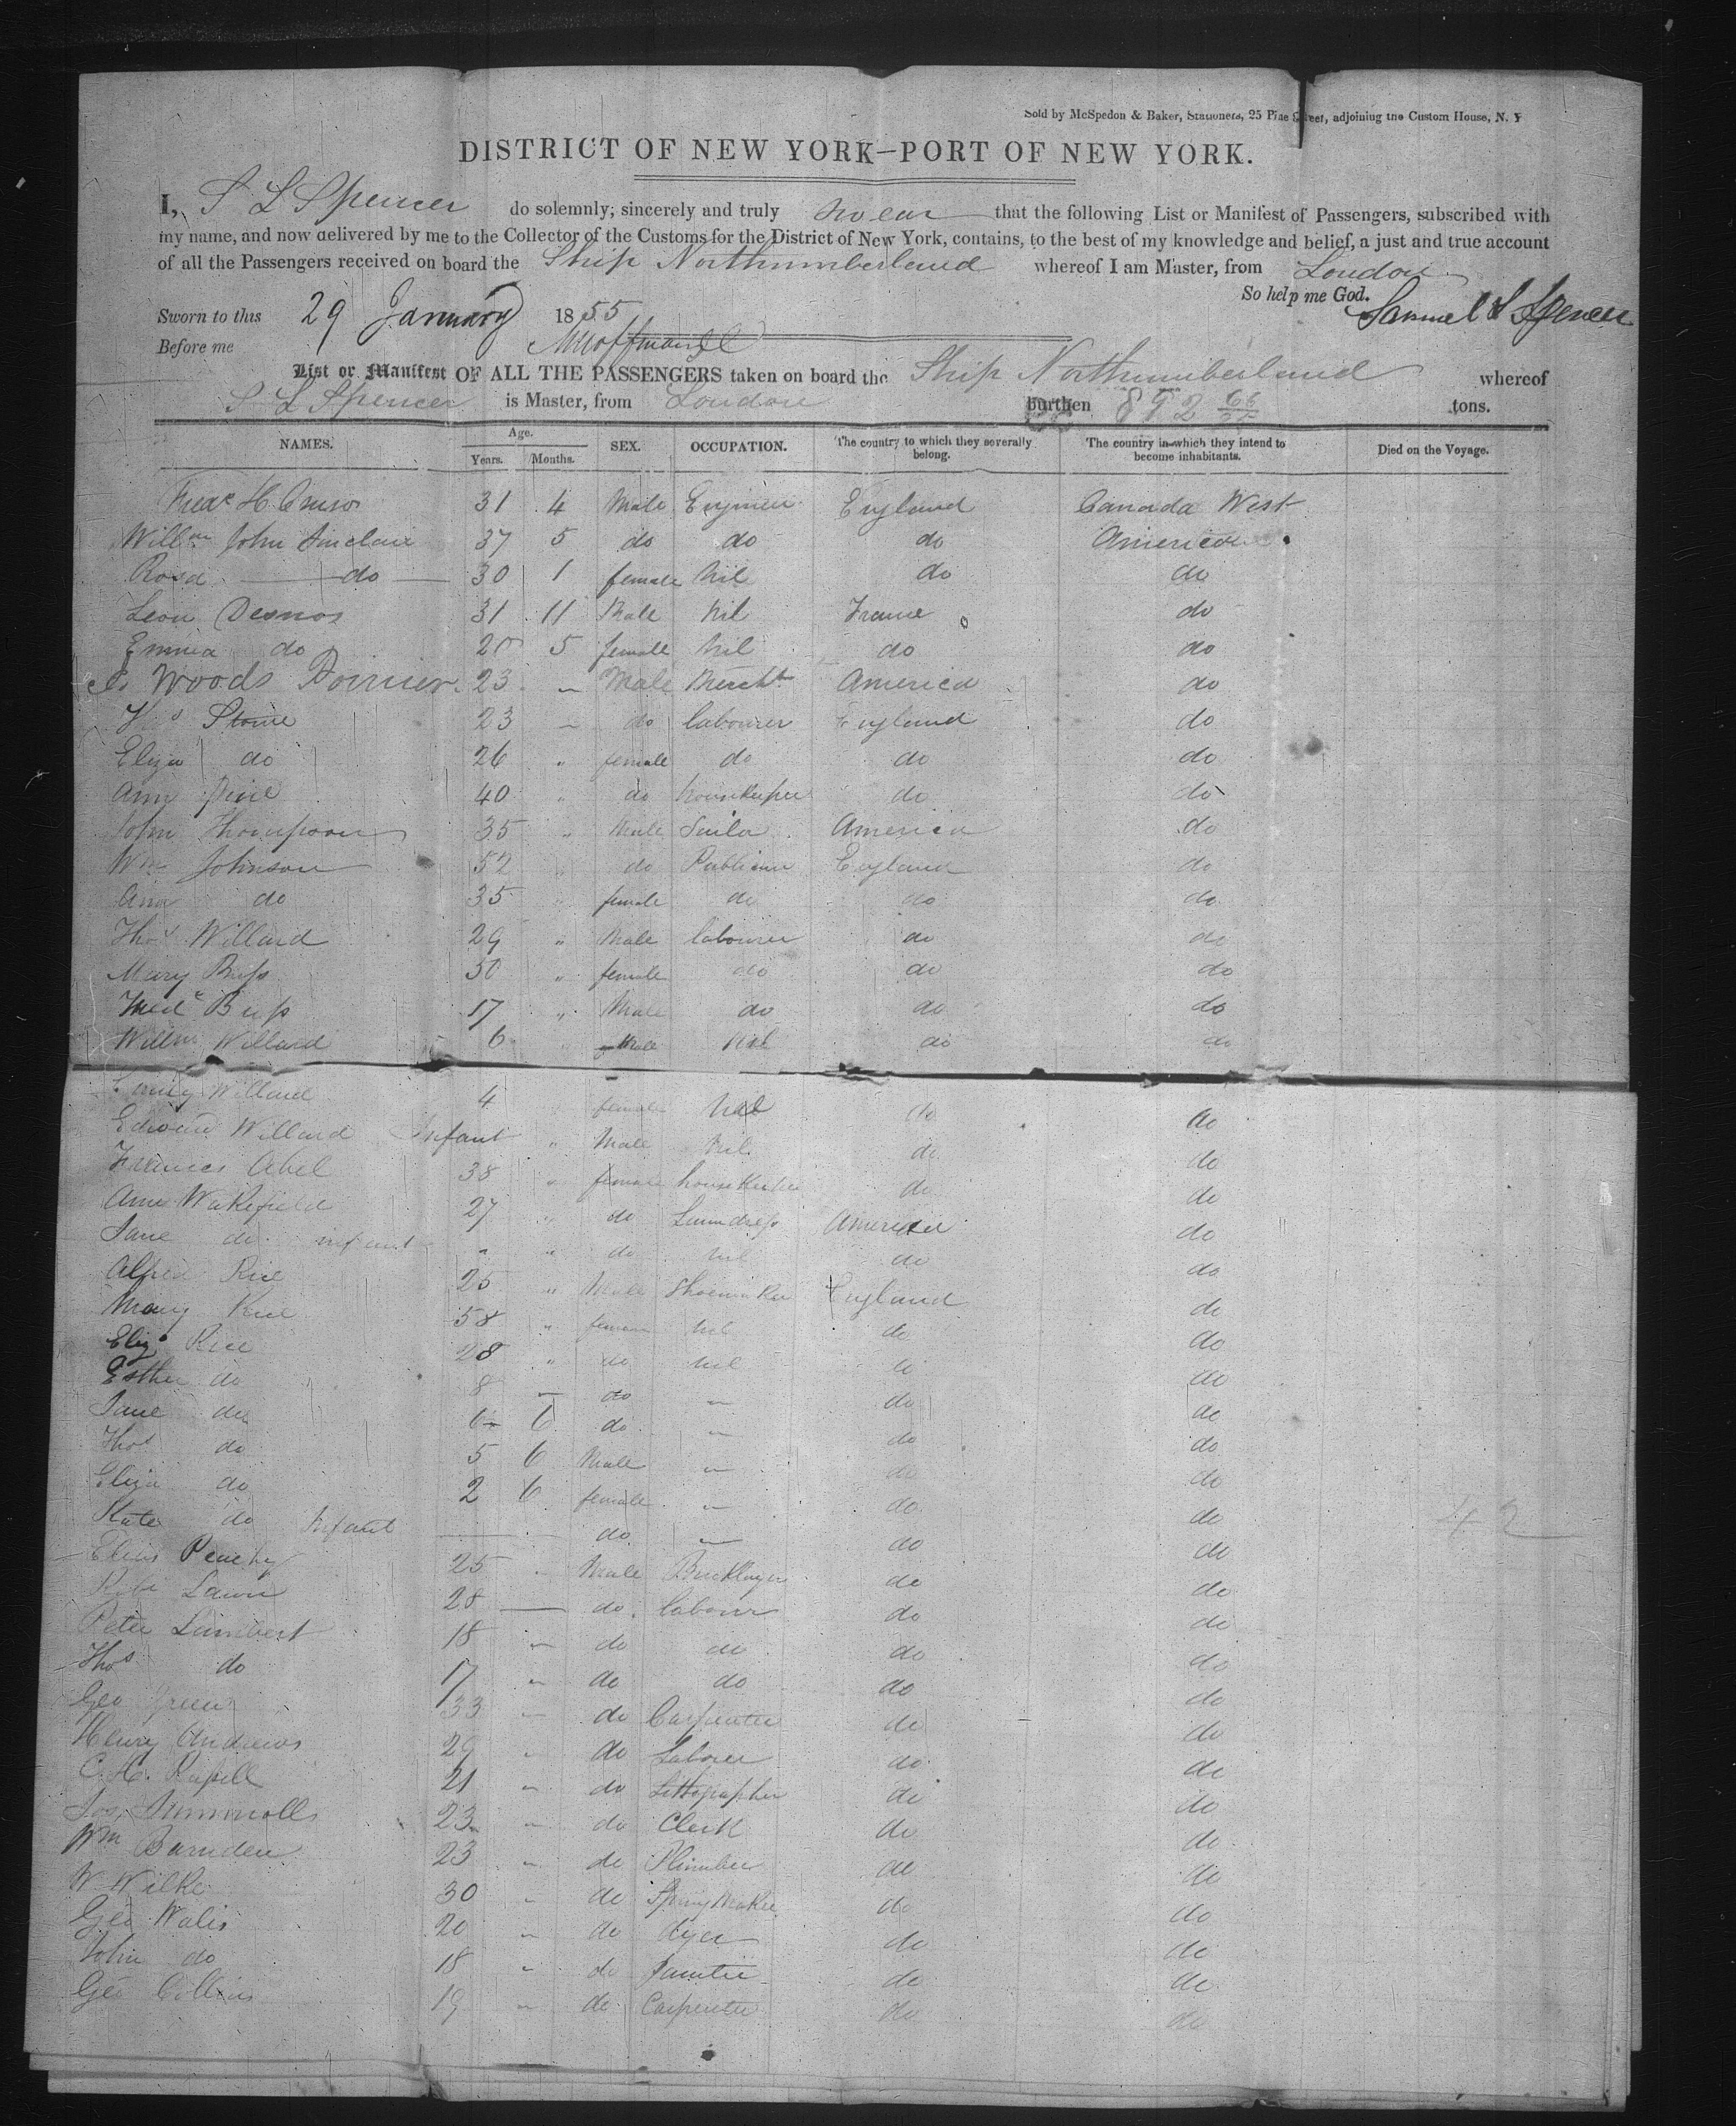 Sold by McSpedon & Baker, Stationers, 25 Pine Street, adjoining the Custom House, N. Y
DISTRICT OF NEW YORK—PORT OF NEW YORK.
I, S L Spencer do solemnly; sincerely and truly swear that the following List or Manifest of Passengers, subscribed with
my name, and now delivered by me to the Collector of the Customs for the District of New York, contains, to the best of my knowledge and belief, a just and true account
of all the Passengers received on board the Ship Northumberland whereof I am Master, from London
So help me God.
Samuel L Spencer
Sworn to this 29 January 1855
Before me
List or Manifest OF ALL THE PASSENGERS taken on board the Ship Northumberland whereof
S L Spencer is Master, from London burthen 892 tons.
NAMES. Age. Years. Months. SEX. OCCUPATION. The country to which they severally belong. The country in which they intend to become inhabitants. Died on the Voyage.
H. 31 4 Male England Canada West
Willm John Sinclair 37 5 do do do America
Rosa do 30 1 female Nil do do
Leon Desnos 31 11 Male Nil France do
Emma do 20 5 female Nil do do
Woods 23 " Male Mercht America do
Thos Stone 23 " do labourer England do
Eliza do 26 " female do do do
Ann 40 " do housekeeper do do
John Thompson 35 " Male America do
Wm Johnson 52 " do Publican England do
Ann do 35 " female do do do
Thos Willard 29 " Male labourer do do
Mary Buss " female do do do
Fredk Buss 17 " Male do do do
Willm Willard 6 " Male Nil do do
Emily Willard 4 female Nil do do
Edward Willard Infant " Male Nil do do
Frances Abel 38 " female housekeeper do do
Ann Wakefield 27 " do Laundress America do
Jane do infant " " do nil do do
Alfred Rice 25 " Male Shoemaker England do
Mary Rice 58 " female nil do do
Eliz Rice 28 " do nil do do
Esther do 8 — do " do do
Jane do 6 6 do " do do
Thos do 5 6 Male " do do
Eliza do 2 6 female " do do
Kate do Infant do " do do
42
Elias Peachy 25 " Male Bricklayer do do
Robt Lawn 28 — do labour do do
Peter Lambert 18 " do do do do
Thos do 17 " do do do do
Geo Green 33 " do Carpenter do do
Henry Andrews 29 " do Laborer do do
C. H. Russell 21 " do Lithographer do do
Jos 23 " do Clerk do do
Wm Barnden 23 " do Plumber do do
W Wilke 30 " do Spring Maker do do
Geo Walis 20 " do dyer do do
John do 18 " do painter do do
Geo Collins 19 " do Carpenter do do